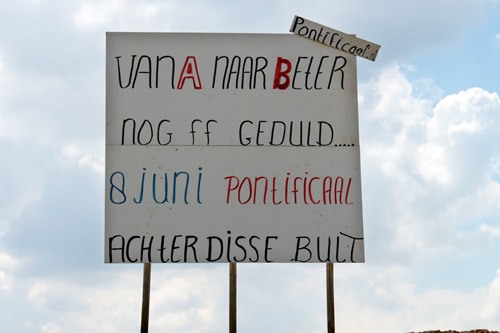 Pontificaal.nl
VAN A NAAR BETER
NOG FF GEDULD.....
8 JUNI PONTIFICAAL
ACHTER DISSE BULT